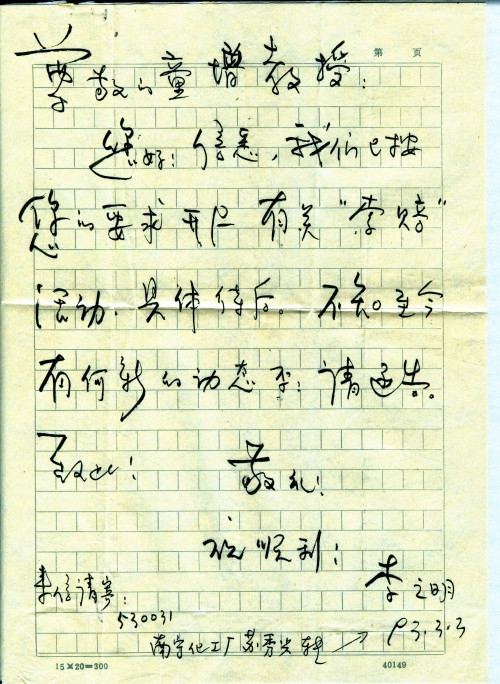 第 页
尊敬的童增教授：
您好！信悉，我们已按
您的要求开展有关“索赔”
活动，具体待后。不知至今
有何新的动态否？请函告。
致此！ 敬礼！
祝顺利！
李 明
来信请寄：
530031
南宁化工厂苏秀 转 → 93.3.3
15×20=300 40149